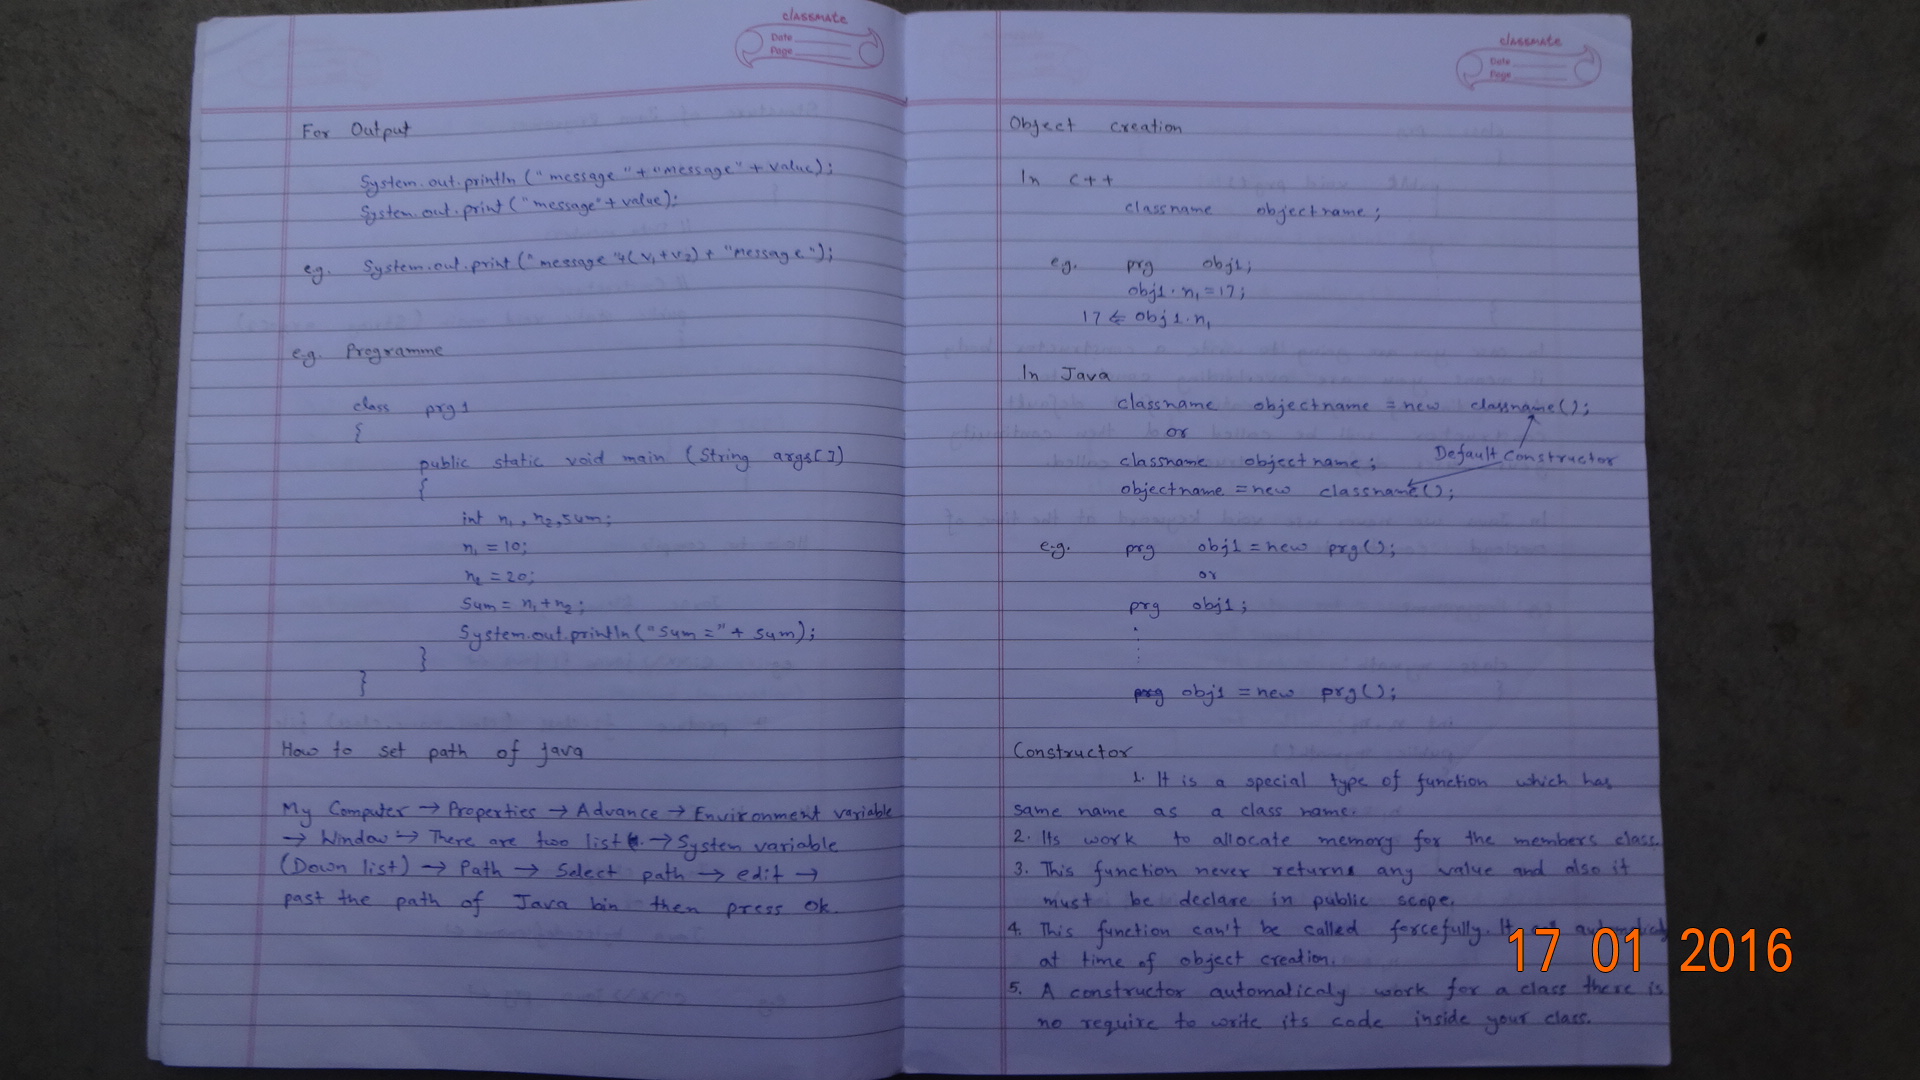 classmate
Date
Page
For Output
System.out.println ("message"+"message"+value);
System.out.print ("message"+value);
eg. System.out.print ("message"+(v1+v2)+"message");
e.g. Programme
class prg1
{
public static void main (String args[])
{
int n1, n2, sum;
n1 = 10;
n2 = 20;
sum = n1+n2;
System.out.println("sum ="+ sum);
}
}
How to set path of java
My Computer → Properties → Advance → Environment variable
→ Window → There are two list → System variable
(Down list) → Path → Select path → edit →
past the path of Java bin then press ok.
classmate
Date
Page
Object creation
In C++
classname objectname;
eg. prg obj1;
obj1.n1=17;
17 ⇐ obj1.n1
In Java
classname objectname = new classname();
or
classname objectname; Default Constructor
objectname = new classname();
e.g. prg obj1 = new prg();
or
prg obj1;
prg obj1 = new prg();
Constructor
1. It is a special type of function which has
same name as a class name.
2. Its work to allocate memory for the members class.
3. This function never returns any value and also it
must be declare in public scope.
4. This function can't be called forcefully. It
at time of object creation.
5. A constructor automaticaly work for a class there is
no require to write its code inside your class.
17 01 2016